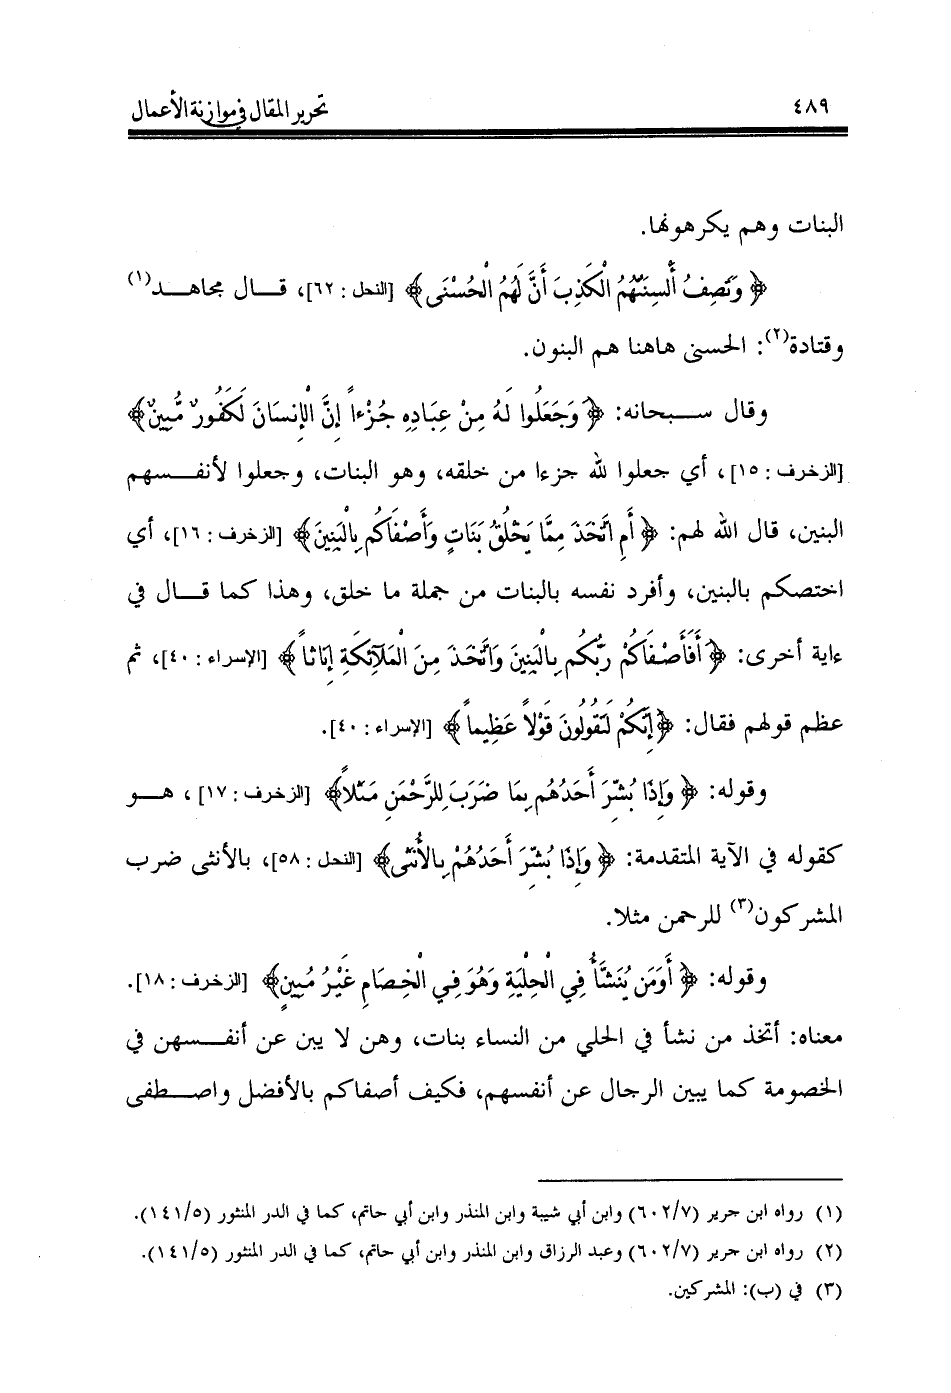 ٤٨٩ تحرير المقال في موازنة الأعمال
البنات وهم يكرهونها.
﴿ وَتَصِفُ أَلْسِنَتُهُمُ الْكَذِبَ أَنَّ لَهُمُ الْحُسْنَى﴾ [النحل : ٦٢]، قـــال مجاهـــد(١)
وقتادة(٢): الحسنى هاهنا هم البنون.
وقال ســـبحانه: ﴿ وَجَعَلُوا لَهُ مِنْ عِبَادِهِ جُزْءاً إِنَّ الْإِنسَانَ لَكَفُورٌ مُّبِينٌ﴾
[الزخرف : ١٥]، أي جعلوا لله جزءا من خلقه، وهو البنات، وجعلوا لأنفـــسهم
البنين، قال الله لهم: ﴿ أَمِ اتَّخَذَ مِمَّا يَخْلُقُ بَنَاتٍ وَأَصْفَاكُم بِالْبَنِينَ﴾ [الزخرف : ١٦]، أي
اختصكم بالبنين، وأفرد نفسه بالبنات من جملة ما خلق، وهذا كما قـــال في
ءاية أخرى: ﴿ أَفَأَصْفَاكُمْ رَبُّكُم بِالْبَنِينَ وَاتَّخَذَ مِنَ الْمَلآئِكَةِ إِنَاثاً﴾ [الإسراء : ٤٠]، ثم
عظم قولهم فقال: ﴿إِنَّكُمْ لَتَقُولُونَ قَوْلاً عَظِيماً﴾ [الإسراء : ٤٠].
وقوله: ﴿ وَإِذَا بُشِّرَ أَحَدُهُم بِمَا ضَرَبَ لِلرَّحْمَنِ مَثَلاً﴾ [الزخرف : ١٧]، هـــو
كقوله في الآية المتقدمة: ﴿ وَإِذَا بُشِّرَ أَحَدُهُمْ بِالأُنثَى﴾ [النحل : ٥٨]، بالأنثى ضرب
المشركون(٣) للرحمن مثلا.
وقوله: ﴿ أَوَمَن يُنَشَّأُ فِي الْحِلْيَةِ وَهُوَ فِي الْخِصَامِ غَيْرُ مُبِينٍ﴾ [الزخرف : ١٨].
معناه: أتخذ من نشأ في الحلي من النساء بنات، وهن لا يبن عن أنفـــسهن في
الخصومة كما يبين الرجال عن أنفسهم، فكيف أصفاكم بالأفضل واصـــطفى
(١) رواه ابن جرير (٦٠٢/٧) وابن أبي شيبة وابن المنذر وابن أبي حاتم، كما في الدر المنثور (١٤١/٥).
(٢) رواه ابن جرير (٦٠٢/٧) وعبد الرزاق وابن المنذر وابن أبي حاتم، كما في الدر المنثور (١٤١/٥).
(٣) في (ب): المشركين.